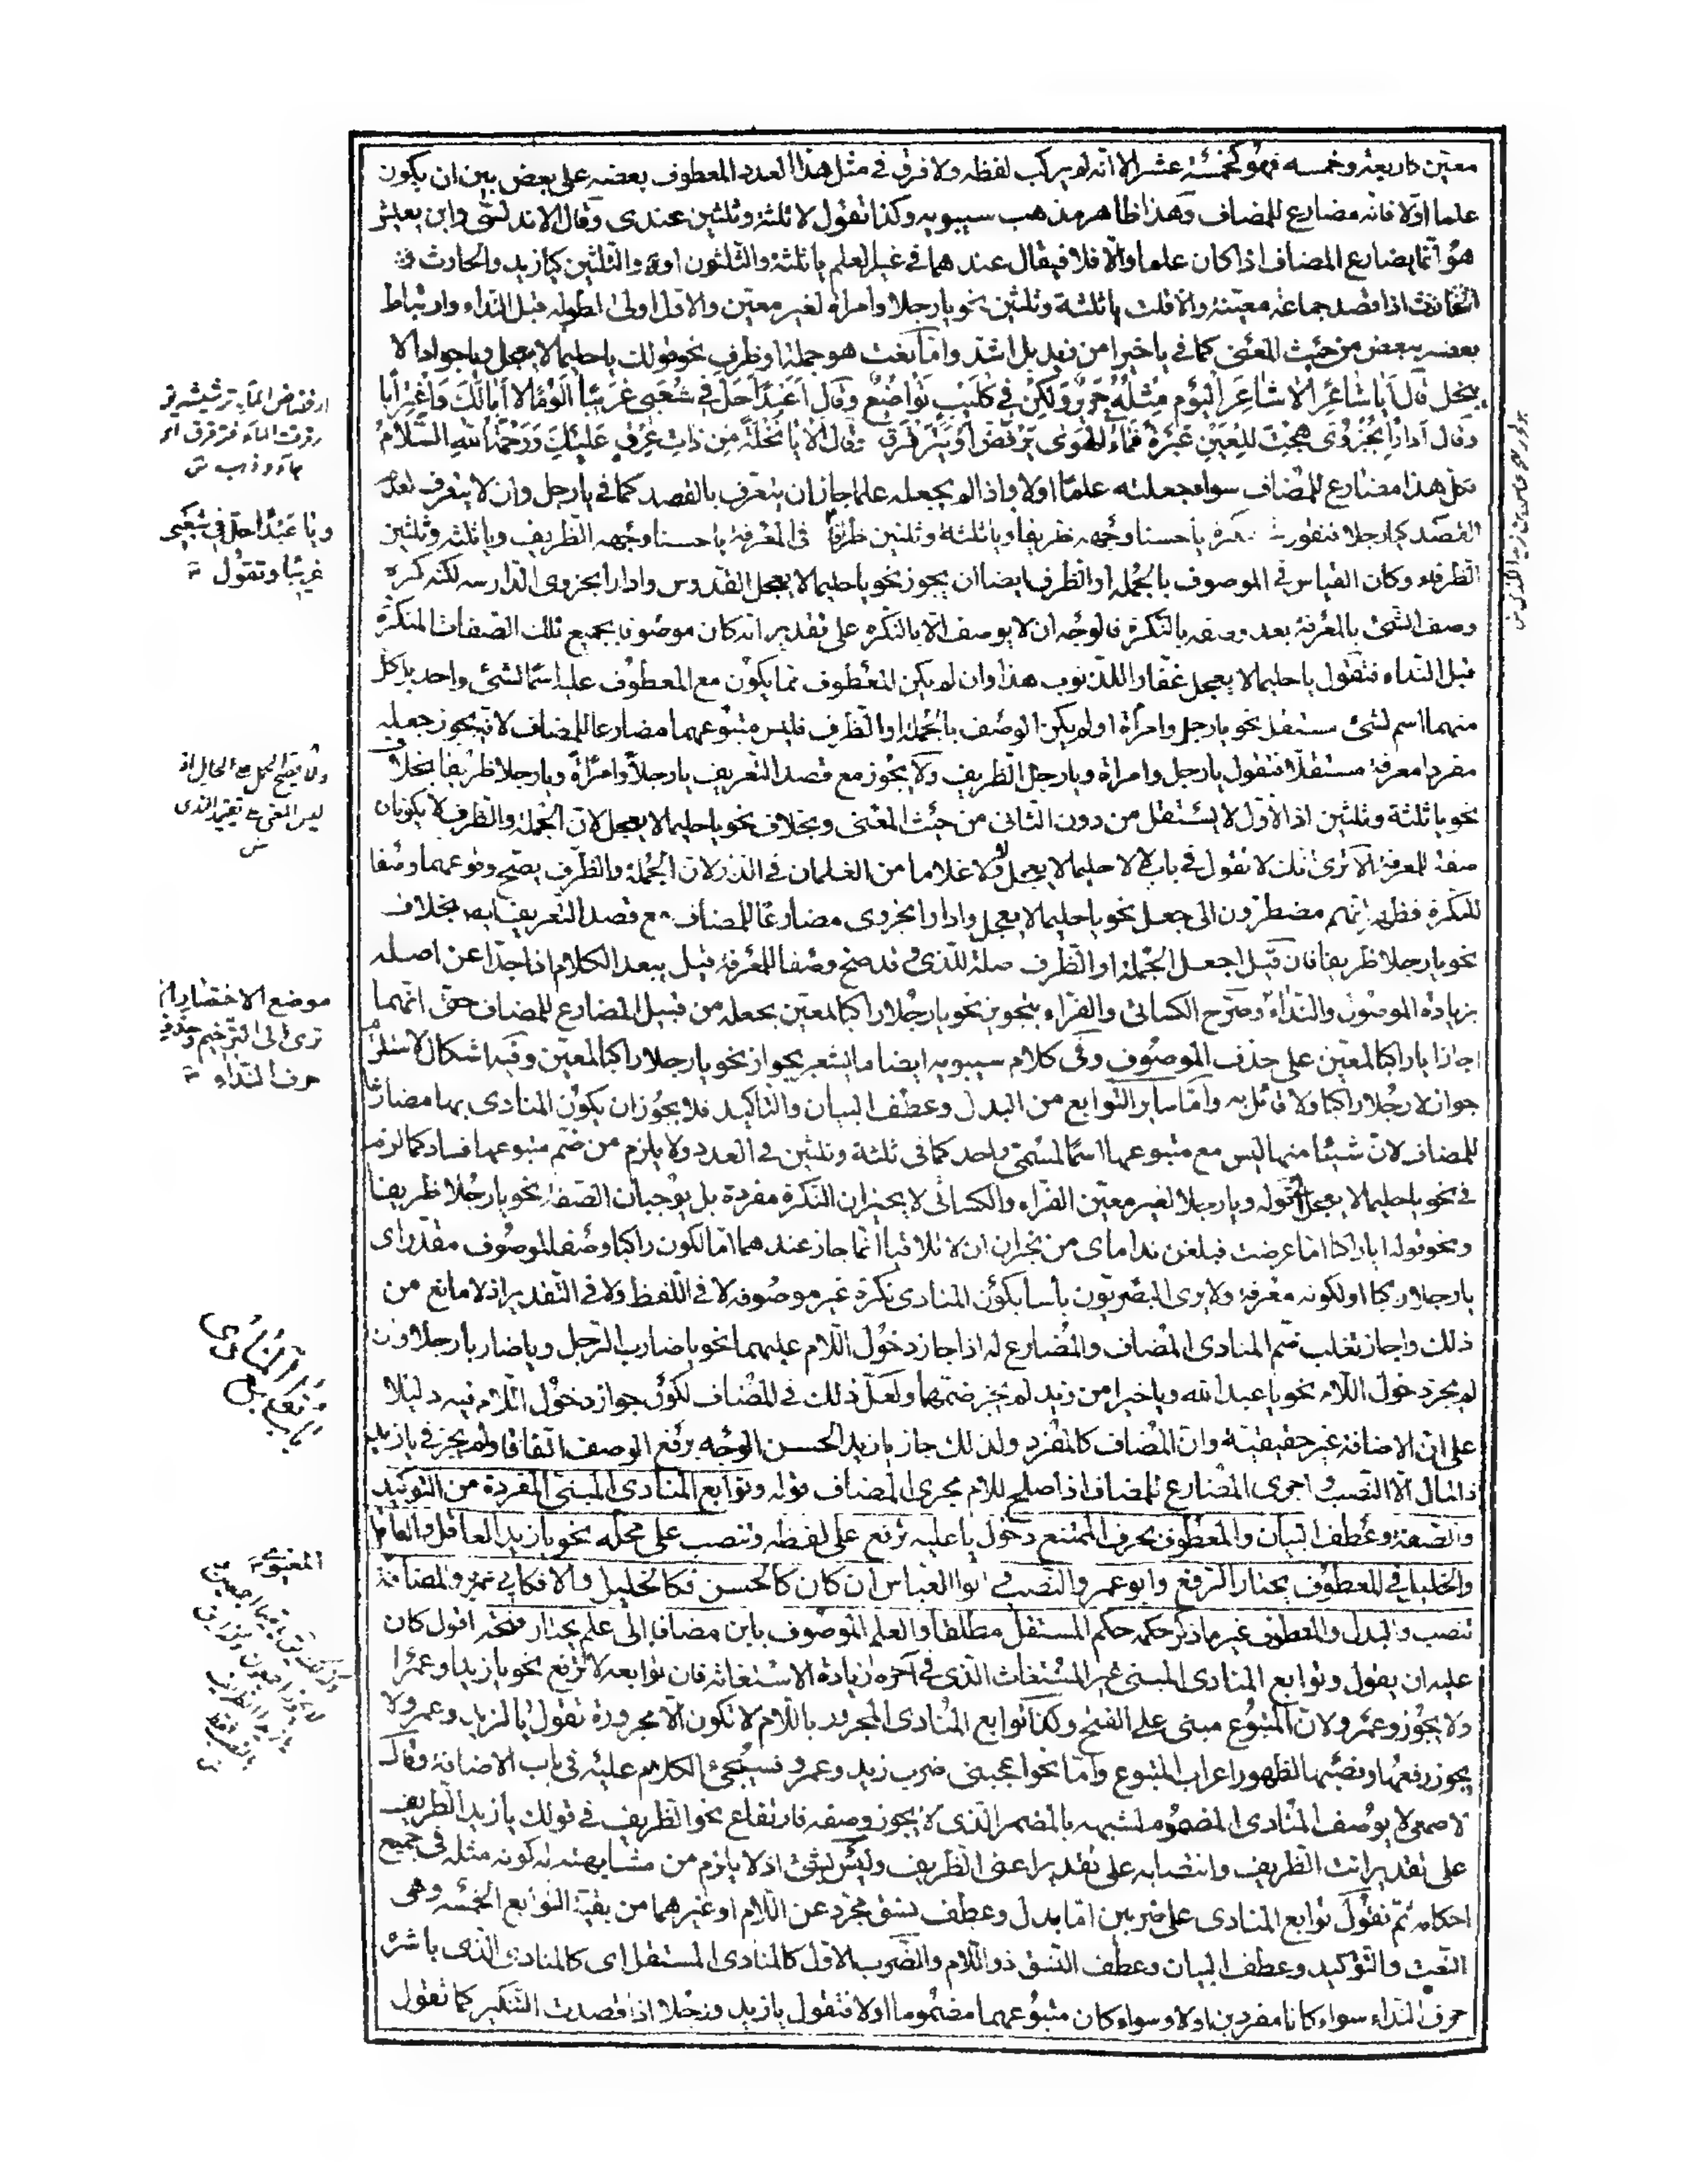 معين كاربعة وخمسة فهو كخمسة عشر الا انه لم يركب لفظه ولا فرق في مثل هذا العدد المعطوف بعضه على بعض بين ان يكون
علما اولا فانه مضارع للمضاف وهذا ظاهر مذهب سيبويه وكذا تقول لا ثلثة وثلثين عندى وقال الاندلسى وابن يعيش
هو انما يضارع المضاف اذا كان علما والا فلا فيقال عندهما في غير العلم يا ثلثة والثلثون او والثلثين كيا زيد والحارث
اذا قصد جماعة معينة والا قلت يا ثلثة وثلثين نحو يا رجلا وامراة لغير معين والاول اولى لطوله قبل النداء وارتباط
بعضه ببعض من حيث المعنى كما في يا خيرا من زيد بل اشد واما نعت هو جملة او ظرف نحو قولك يا حليما لا يعجل ويا جوادا لا
يبخل قال ايا شاعرا لا شاعر اليوم مثله جرير ولكن في كليب تواضع وقال اعبدا حل في شعبى غريبا الؤما لا ابا لك واغترابا
وقال ادارا بحزوى هجت للعين عبرة فماء الهوى يرفض او يترقرق وقال الا يا نخلة من ذات عرق عليك ورحمة الله السلام
فكل هذا مضارع للمضاف سواء جعلته علما اولا واذا لم يجعله علما جاز ان يتعرف بالقصد كما في يا رجل وان لا يتعرف لعدم
القصد كيا رجلا فتقول نكرة يا حسنا وجهه ظريفا ويا ثلثة وثلثين ظرفا في المعرفة يا حسنا وجهه الظريف ويا ثلثة وثلثين
الظرفاء وكان القياس في الموصوف بالجملة او الظرف ايضا ان يجوز نحو يا حليما لا يعجل القدوس وادارا بحزوى الدارسة لكنه كره
وصف الشئ بالمعرفة بعد وصفه بالنكرة فالوجه ان لا يوصف الا بالنكرة على تقدير انه كان موصوفا بجميع تلك الصفات المنكرة
قبل النداء فتقول يا حليما لا يعجل غفارا للذنوب هذا وان لم يكن المعطوف مما يكون مع المعطوف عليه اسما لشئ واحد بل كل
منهما اسم لشئ مستقل نحو يا رجل وامراة او لم يكن الوصف بالجملة او الظرف فليس متبوعهما مضارعا للمضاف لانه يجوز جعله
مفردا معرفة مستقلا فتقول يا رجل وامراة ويا رجل الظريف ولا يجوز مع قصد التعريف يا رجلا وامراة ويا رجلا ظريفا بخلاف
نحو يا ثلثة وثلثين اذ الاول لا يستقل من دون الثاني من حيث المعنى وبخلاف نحو يا حليما لا يعجل لان الجملة والظرف لا يكونان
صفة للمعرفة الا ترى انك لا تقول في باب لا لا حليما لا يعجل ولا غلاما من الغلمان في الدار لان الجملة والظرف يصح وقوعهما وصفا
للنكرة فظهر انهم مضطرون الى جعل نحو يا حليما لا يعجل وادارا بحزوى مضارعا للمضاف مع قصد التعريف بخلاف
نحو يا رجلا ظريفا فان قيل اجعل الجملة او الظرف صلة للذى فتصح وصفا للمعرفة قيل يبعد الكلام اذا جدا عن اصله
بزيادة الموصول والنداء وصرح الكسائى والفراء بتجويز نحو يا رجلا راكبا لمعين بجعله من قبيل المضارع للمضاف حتى انهما
اجازا يا راكبا لمعين على حذف الموصوف وفي كلام سيبويه ايضا ما يشعر بجواز نحو يا رجلا راكبا لمعين وفيه اشكال لاستلزام
جواز لا رجلا راكبا ولا قائل به واما سائر التوابع من البدل وعطف البيان والتاكيد فلا يجوز ان يكون المنادى بها مضارعا
للمضاف لان شيئا منها ليس مع متبوعها اسما لمسمى واحد كما في ثلثة وثلثين في العدد ولا يلزم من ضم متبوعها فساد كما لزم
في نحو يا حليما لا يعجل قوله ويا رجلا لغير معين الفراء والكسائى لا يجيزان النكرة مفردة بل يوجبان الصفة نحو يا رجلا ظريفا
ونحو قوله ايا راكبا اما عرضت فبلغن نداماى من نجران ان لا تلاقيا انما جاز عندهما اما لكون راكبا وصفا لموصوف مقدر اى
يا رجلا راكبا او لكونه معرفة ولا يرى البصريون باسا بكون المنادى نكرة غير موصوفة لا في اللفظ ولا في التقدير اذ لا مانع من
ذلك واجاز ثعلب ضم المنادى المضاف والمضارع له اذا جاز دخول اللام عليهما نحو يا ضارب الرجل ويا ضاربا رجلا وان
لم يجز دخول اللام نحو يا عبد الله ويا خيرا من زيد لم يجز ضمهما ولعل ذلك في المضاف لكون جواز دخول اللام فيه دليلا
على ان الاضافة غير حقيقية وان المضاف كالمفرد ولذلك جاز يا زيد الحسن الوجه برفع الوصف اتفاقا ولم يجز في يا زيد
ذا المال الا النصب واجرى المضارع للمضاف اذا صلح للام مجرى المضاف قوله وتوابع المنادى المبنى المفردة من التوكيد
والصفة وعطف البيان والمعطوف بحرف الممتنع دخول يا عليه ترفع على لفظه وتنصب على محله نحو يا زيد العاقل والعاقل
والخليل في المعطوف يختار الرفع وابو عمرو النصب وابو العباس ان كان كالحسن فكالخليل والا فكابي عمرو والمضافة
تنصب والبدل والمعطوف غير ما ذكر حكمه حكم المستقل مطلقا والعلم الموصوف بابن مضافا الى علم يختار فتحه اقول كان
عليه ان يقول وتوابع المنادى المبنى غير المستغاث الذى في آخره زيادة الاستغاثة فان توابعه لا ترفع نحو يا زيدا وعمرا
ولا يجوز وعمرو لان المتبوع مبنى على الفتح وكذا توابع المنادى المجرور باللام لا تكون الا مجرورة تقول يا لزيد وعمرو ولا
يجوز رفعها ونصبها لظهور اعراب المتبوع واما نحو اعجبنى ضرب زيد وعمرو فسيجئ الكلام عليه في باب الاضافة وقال
الاصمعى لا يوصف المنادى المضموم لشبهه بالمضمر الذى لا يجوز وصفه فارتفاع نحو الظريف في قولك يا زيد الظريف
على تقدير انت الظريف وانتصابه على تقدير اعنى الظريف وليس بشئ اذ لا يلزم من مشابهته له كونه مثله في جميع
احكامه ثم نقول توابع المنادى على ضربين اما بدل وعطف نسق مجرد عن اللام او غيرهما من بقية التوابع الخمسة وهى
النعت والتوكيد وعطف البيان وعطف النسق ذو اللام والضرب الاول كالمنادى المستقل اى كالمنادى الذى باشره
حرف النداء سواء كانا مفردين اولا وسواء كان متبوعهما مضموما اولا فتقول يا زيد ورجلا اذا قصدت التنكير كما تقول
ويا عبدا حل في شعبى
غريبا وتقول
موضع الاختصار الا
ترى الى الترخيم وحذف
حرف النداء
توابع المنادى